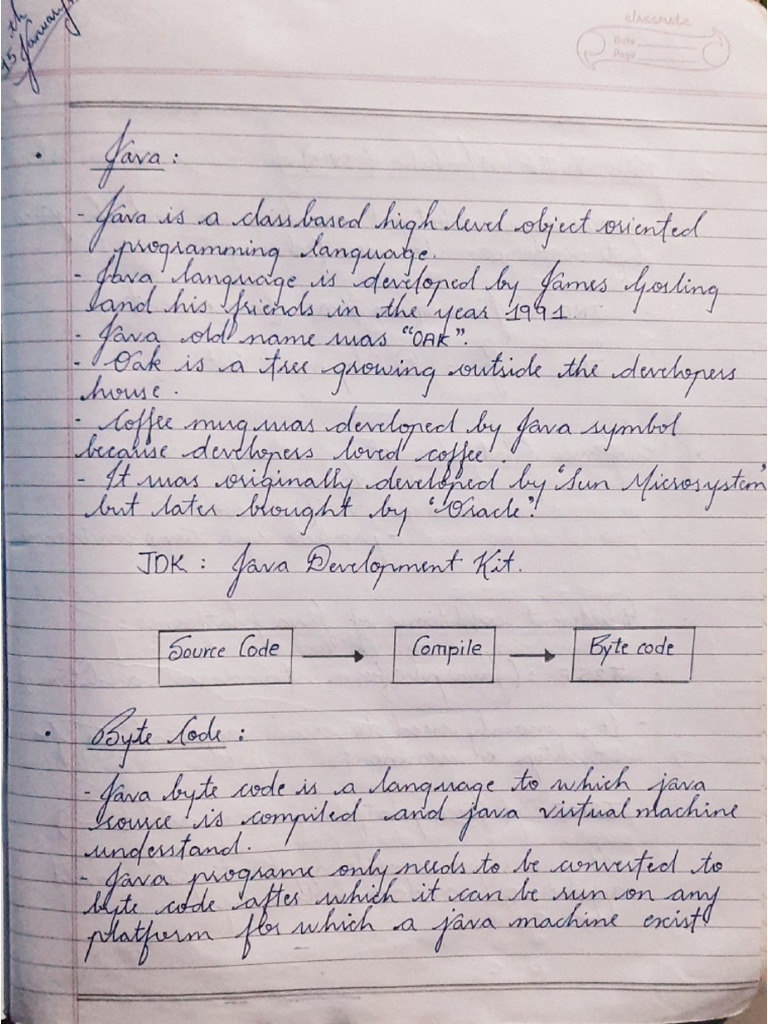 15th January
classmate
Date
Page
Java :
- Java is a classbased high level object oriented
programming language.
- Java language is developed by James Gosling
and his friends in the year 1991.
- Java old name was "OAK".
- Oak is a tree growing outside the developers
house.
- Coffee mug was developed by Java symbol
because developers loved coffee.
- It was originally developed by "Sun Microsystem"
but later brought by "Oracle".
JDK : Java Development Kit.
Source Code → Compile → Byte code
Byte Code :
- Java byte code is a language to which java
source is compiled and java virtual machine
understand.
- Java programe only needs to be converted to
byte code after which it can be run on any
platform for which a java machine exist